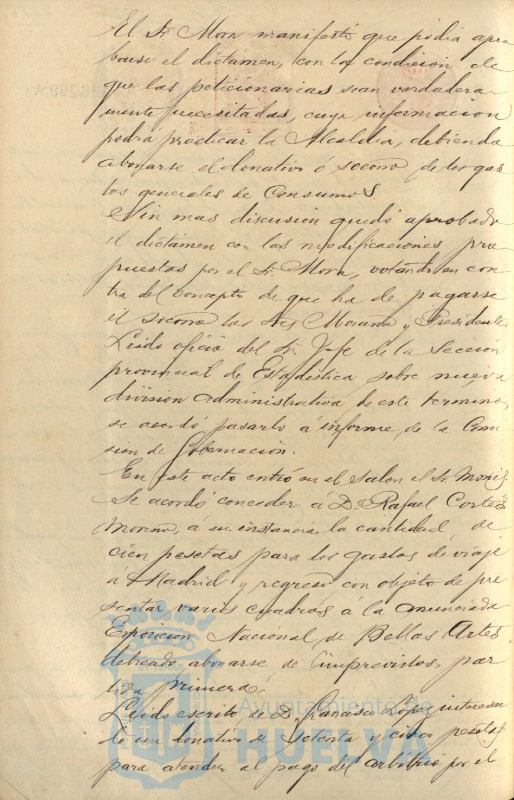 El Sr. Mora manifestó que podia apro
barse el dictámen, con la condicion de
que las peticionarias sean verdadera
mente necesitadas, cuya informacion
podrá practicar la Alcaldia, debiendo
abonarse el donativo ó socorro de los gas
tos generales de Consumos
Sin mas discusion quedó aprobado
el dictámen con las modificaciones pro
puestas por el Sr. Mora, votándose en con
tra del concepto de que ha de pagarse
el socorro los Sres Moraña y Presidente
Leido oficio del Sr. Jefe de la Seccion
provincial de Estadistica sobre nueva
division administrativa de este termino,
se acordó pasarlo a informe de la Comi
sion de Gobernacion.
En este acto entró en el salon el Sr.
Se acordó conceder á D. Rafael Cortés
Moreno, á su instancia, la cantidad de
cien pesetas para los gastos de viaje
a Madrid y regreso con objeto de pre
sentar varios cuadros a la anunciada
Exposicion Nacional de Bellas Artes
debiendo abonarse de Imprevistos, par
tida primera.
Leido escrito de D. Francisco Lopez interesan
do un donativo de Setenta y cinco pesetas
para atender al pago del arbitrio por el
Ayuntamiento de
HUELVA